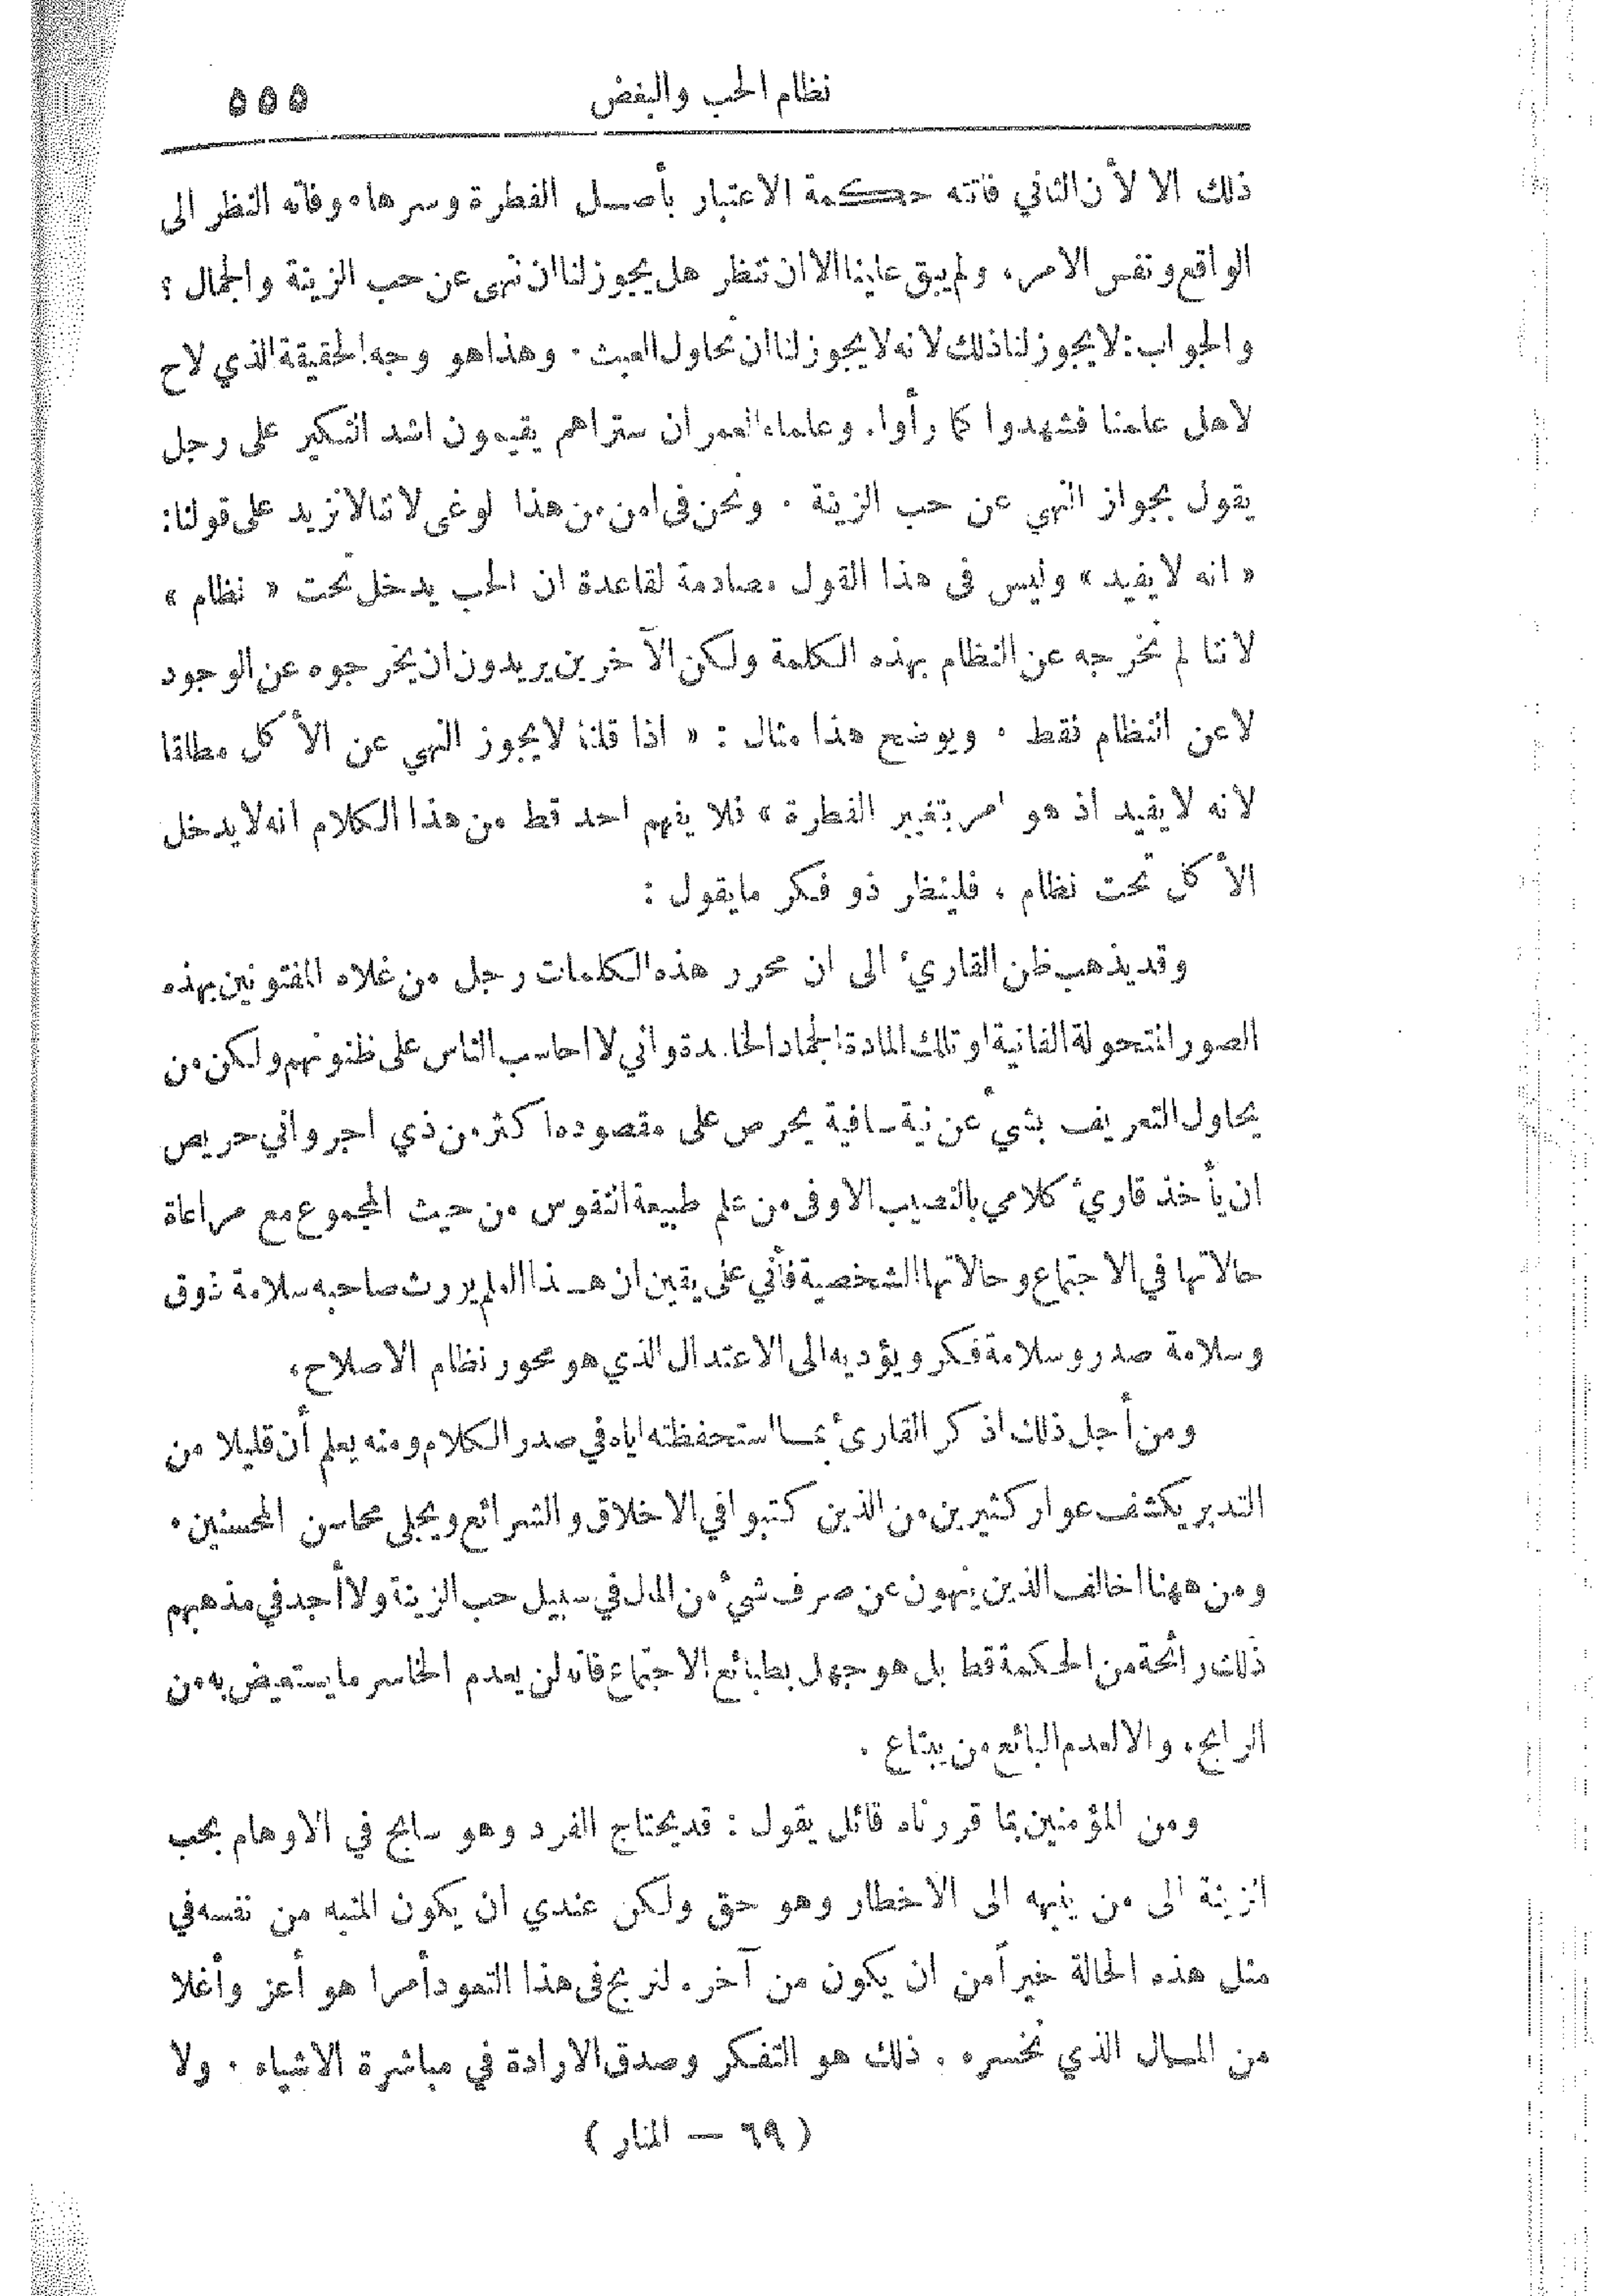 نظام الحب والبغض ٥٥٥
ذلك الا لأن الثاني فاتته حكمة الاعتبار بأصل الفطرة وسرها، وفاته النظر الى
الواقع ونفس الامر، ولم يبق علينا الا ان ننظر هل يجوز لنا ان ننهى عن حب الزينة والجمال؟
والجواب: لا يجوز لنا ذلك لانه لا يجوز لنا ان نحاول العبث. وهذا هو وجه الحقيقة الذي لاح
لاهل علمنا فشهدوا كما رأوا. وعلماء العمران ستراهم يقيمون اشد النكير على رجل
يقول بجواز النهي عن حب الزينة. ونحن في امن من هذا لوغى لاننا لا نزيد على قولنا:
« انه لا يفيد » وليس فى هذا القول مصادمة لقاعدة ان الحب يدخل تحت « نظام »
لاننا لم نخرجه عن النظام بهذه الكلمة ولكن الآخرين يريدون ان يخرجوه عن الوجود
لا عن النظام فقط. ويوضح هذا مثال: « اذا قلنا لا يجوز النهي عن الأكل مطلقا
لانه لا يفيد اذ هو امر بتغيير الفطرة » فلا يفهم احد قط من هذا الكلام انه لا يدخل
الأكل تحت نظام، فلينظر ذو فكر ما يقول:
وقد يذهب ظن القاريء الى ان محرر هذه الكلمات رجل من غلاه المفتونين بهذه
الصور المتحولة الفانية او تلك المادة الجماد الخامدة واني لا احاسب الناس على ظنونهم ولكن من
يحاول التعريف بشيء عن نية صافية يحرص على مقصوده اكثر من ذي اجر واني حريص
ان يأخذ قاريء كلامي بالنصيب الاوفى من علم طبيعة النفوس من حيث المجموع مع مراعاة
حالاتها في الاجتماع وحالاتها الشخصية فأني على يقين ان هذا العلم يورث صاحبه سلامة ذوق
وسلامة صدر وسلامة فكر ويؤديه الى الاعتدال الذي هو محور نظام الاصلاح،
ومن أجل ذلك اذكر القارئ بما استحفظته اياه في صدر الكلام ومنه يعلم أن قليلا من
التدبر يكشف عوار كثيرين من الذين كتبوا في الاخلاق والشرائع ويجلى محاسن المحسنين.
ومن ههنا اخالف الذين ينهون عن صرف شيء من المال في سبيل حب الزينة ولا أجد في مذهبهم
ذلك رائحة من الحكمة قط بل هو جهل بطبائع الاجتماع فانه لن يعدم الخاسر ما يستعيض به من
الرابح، والا لعدم البائع من يبتاع.
ومن المؤمنين بما قررناه قائل يقول: قد يحتاج الفرد وهو سابح في الاوهام بحب
الزينة الى من ينبهه الى الاخطار وهو حق ولكن عندي ان يكون المنبه من نفسه في
مثل هذه الحالة خير أمن ان يكون من آخر، لنربح فى هذا التعود أمرا هو أعز وأغلا
من المال الذي نخسره. ذلك هو التفكر وصدق الارادة في مباشرة الاشياء. ولا
(٦٩ — المنار)